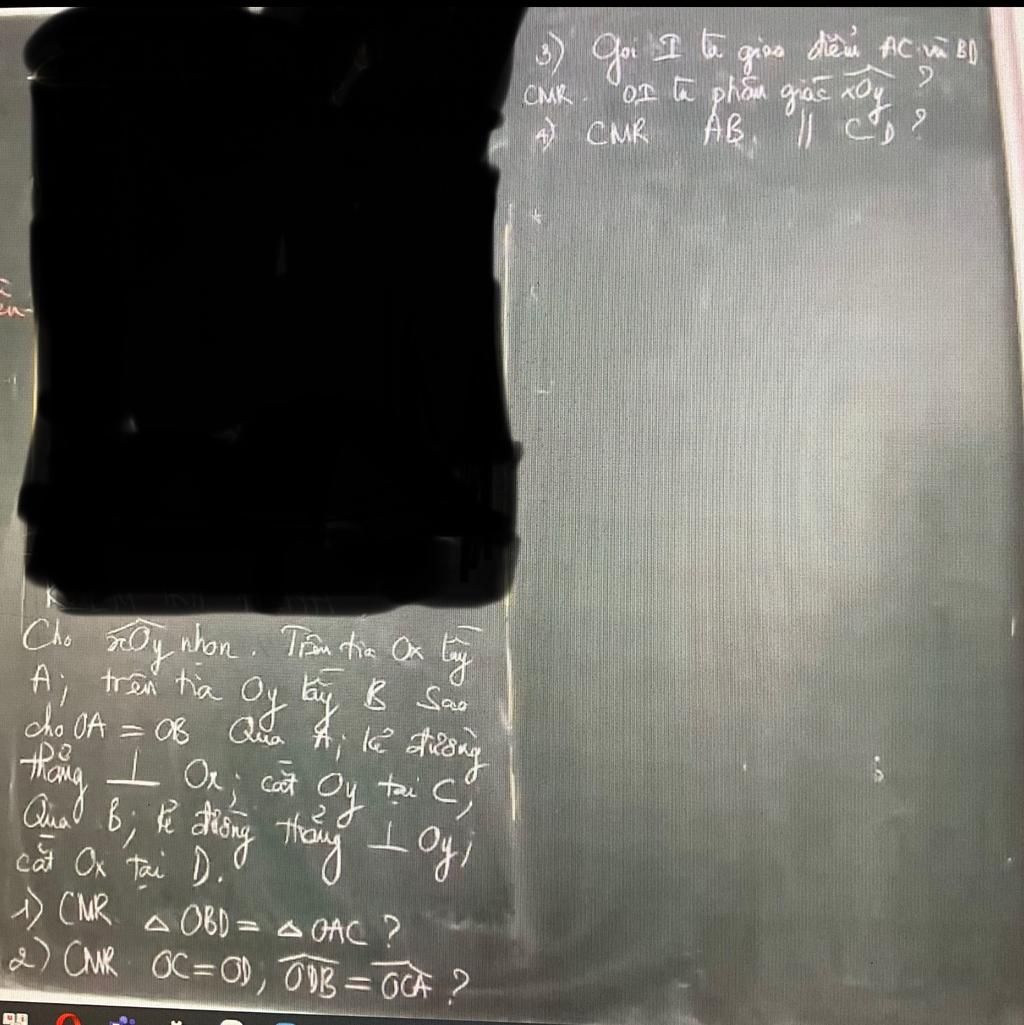 Cho xOy nhọn. Trên tia Ox lấy
A; trên tia Oy lấy B sao
cho OA = OB Qua A; kẻ đường
thẳng ⊥ Ox; cắt Oy tại C;
Qua B; kẻ đường thẳng ⊥ Oy;
cắt Ox tại D.
1) CMR △ OBD = △ OAC ?
2) CMR OC = OD, ODB = OCA ?
3) Gọi I là giao điểm AC và BD
CMR. OI là phân giác xOy ?
4) CMR AB // CD ?